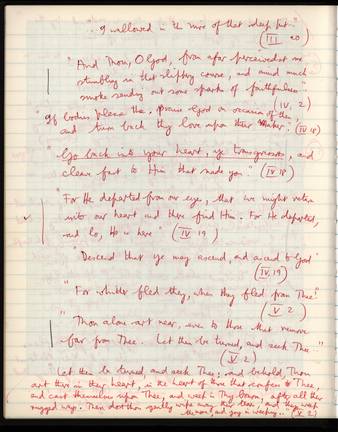 "... I wallowed in the mire of that deep pit"
(III 20)
"And Thou, O God, from afar perceivedst me
stumbling in that slippery course, and amid much
smoke sending out some sparks of faithfulness"
(IV. 2)
"If bodies please thee, praise God on occasion of them
and turn back thy love upon their Maker." (IV 18)
"Go back into your heart, ye transgressors, and
cleave fast to Him that made you" (IV 18)
"For He departed from our eyes, that we might return
into our heart and there find Him. For He departed,
and lo, He is here" (IV 19)
"Descend that ye may ascend, and ascend to God"
(IV, 19)
"For whither fled they, when they fled from Thee?"
(V 2)
"Thou alone art near, even to those that remove
far from Thee. Let them be turned, and seek Thee..."
(V 2)
Let them be turned and seek Thee; and behold, Thou
art there in their heart, in the heart of those that confess to Thee,
and cast themselves upon Thee, and weep in Thy bosom, after all their
rugged ways. Then dost Thou gently wipe away their tears, and they weep
the more, and joy in weeping..." (V 2)